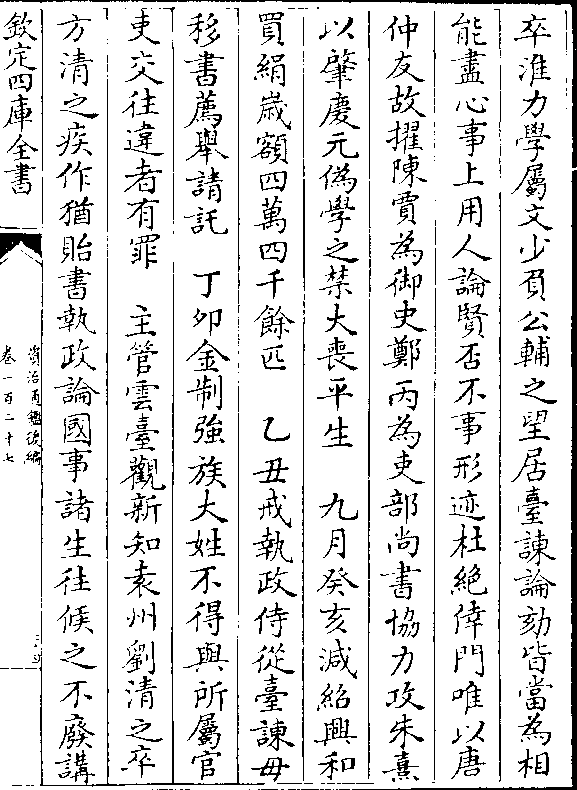 卒淮力學屬文少負公輔之望居臺諫論劾皆當為相
能盡心事上用人論賢否不事形迹杜絶倖門唯以唐
仲友故擢陳賈為御史鄭丙為吏部尚書協力攻朱熹
以肇慶元偽學之禁大喪平生　九月癸亥減紹興和
買絹歲額四萬四千餘匹　乙丑戒執政侍從臺諫毋
移書薦舉請託　丁卯金制強族大姓不得與所屬官
吏交往違者有罪　主管雲臺觀新知袁州劉清之卒
方清之疾作猶貽書執政論國事諸生往候之不廢講
欽定四庫全書
資治通鑑後編
卷一百二十七